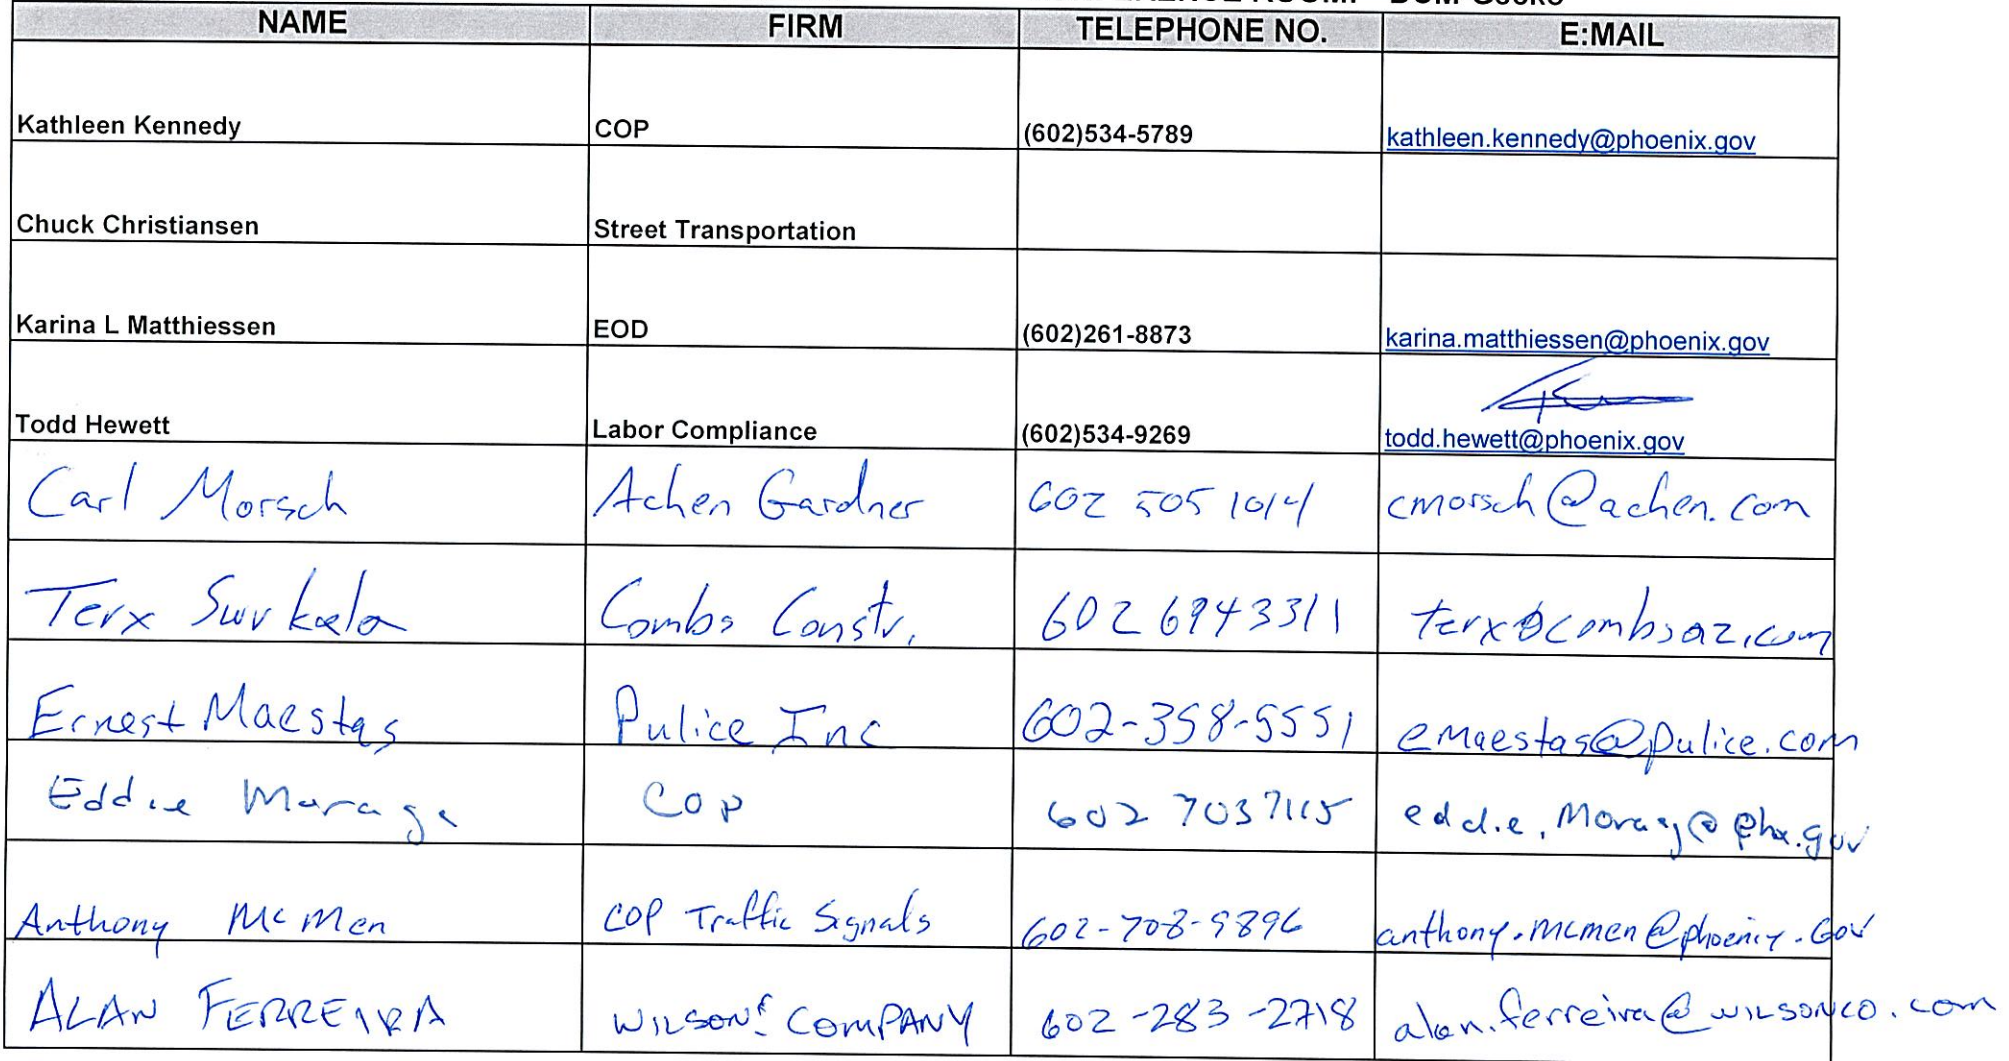 NAME FIRM TELEPHONE NO. E:MAIL
Kathleen Kennedy COP (602)534-5789 kathleen.kennedy@phoenix.gov
Chuck Christiansen Street Transportation
Karina L Matthiessen EOD (602)261-8873 karina.matthiessen@phoenix.gov
Todd Hewett Labor Compliance (602)534-9269 todd.hewett@phoenix.gov
Carl Morsch Achen Gardner 602 505 1014 cmorsch@achen.com
Terx Combs Constr. 602 6943311 terx@combsaz.com
Ernest Maestas Pulice Inc 602-358-5551 emaestas@pulice.com
Eddie COP 602 7037115
Anthony McMen COP Traffic Signals anthony.mcmen@phoenix.Gov
ALAN FERREIRA WILSON & COMPANY 602-283-2718 alan.ferreira@WILSONCO.com